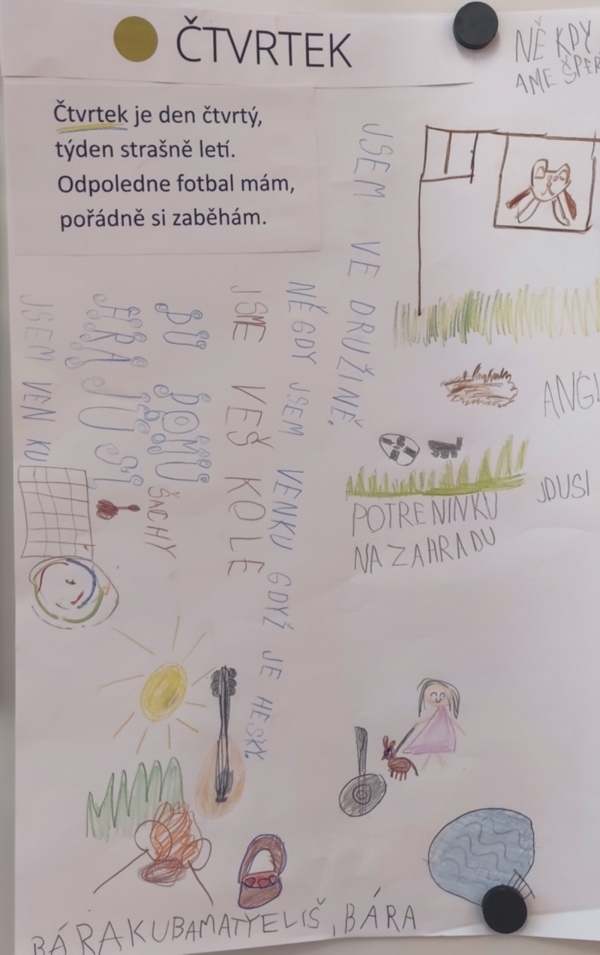 ČTVRTEK
Čtvrtek je den čtvrtý,
týden strašně letí.
Odpoledne fotbal mám,
pořádně si zaběhám.
NĚ KPY
AME ŠPER
JSEM VE DRUŽINĚ,
NĚGDY JSEM VENKU GDYŽ JE HESKY.
JSME VEŠ KOLE
DU DOMU
HRAJU SI
ŠACHY
JSEM VEN KU
ANGL
JDUSI
POTRENINKU
NAZAHRADU
BÁRAKUBAMATYELIŠ, BÁRA